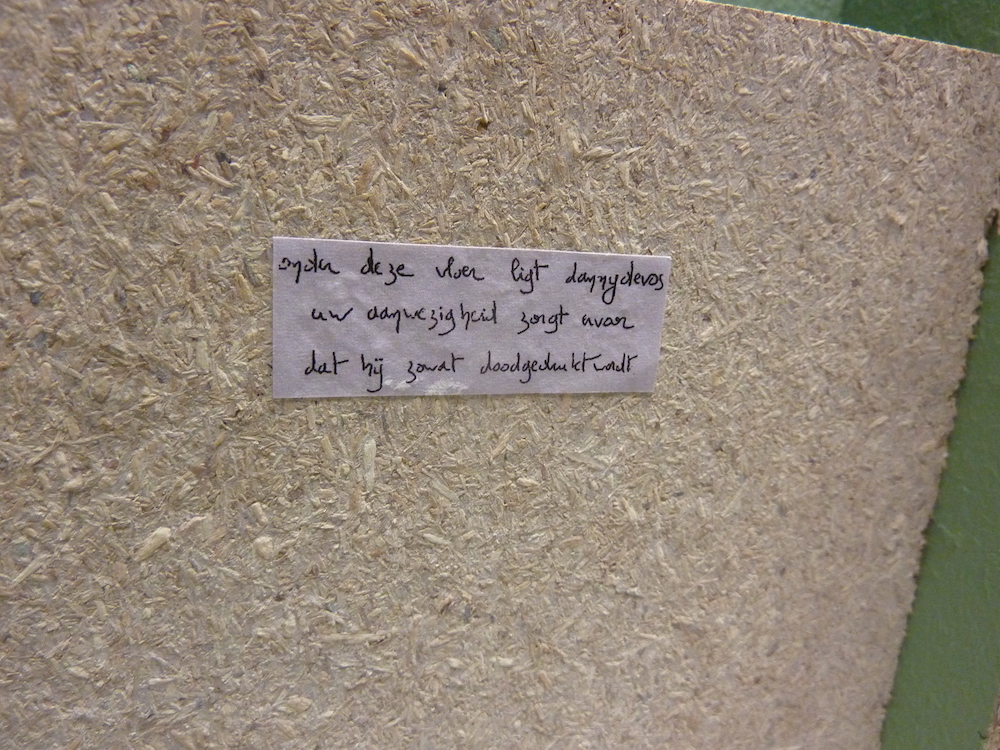 onder deze vloer ligt dannydevos
uw aanwezigheid zorgt ervoor
dat hij zowat doodgedrukt wordt